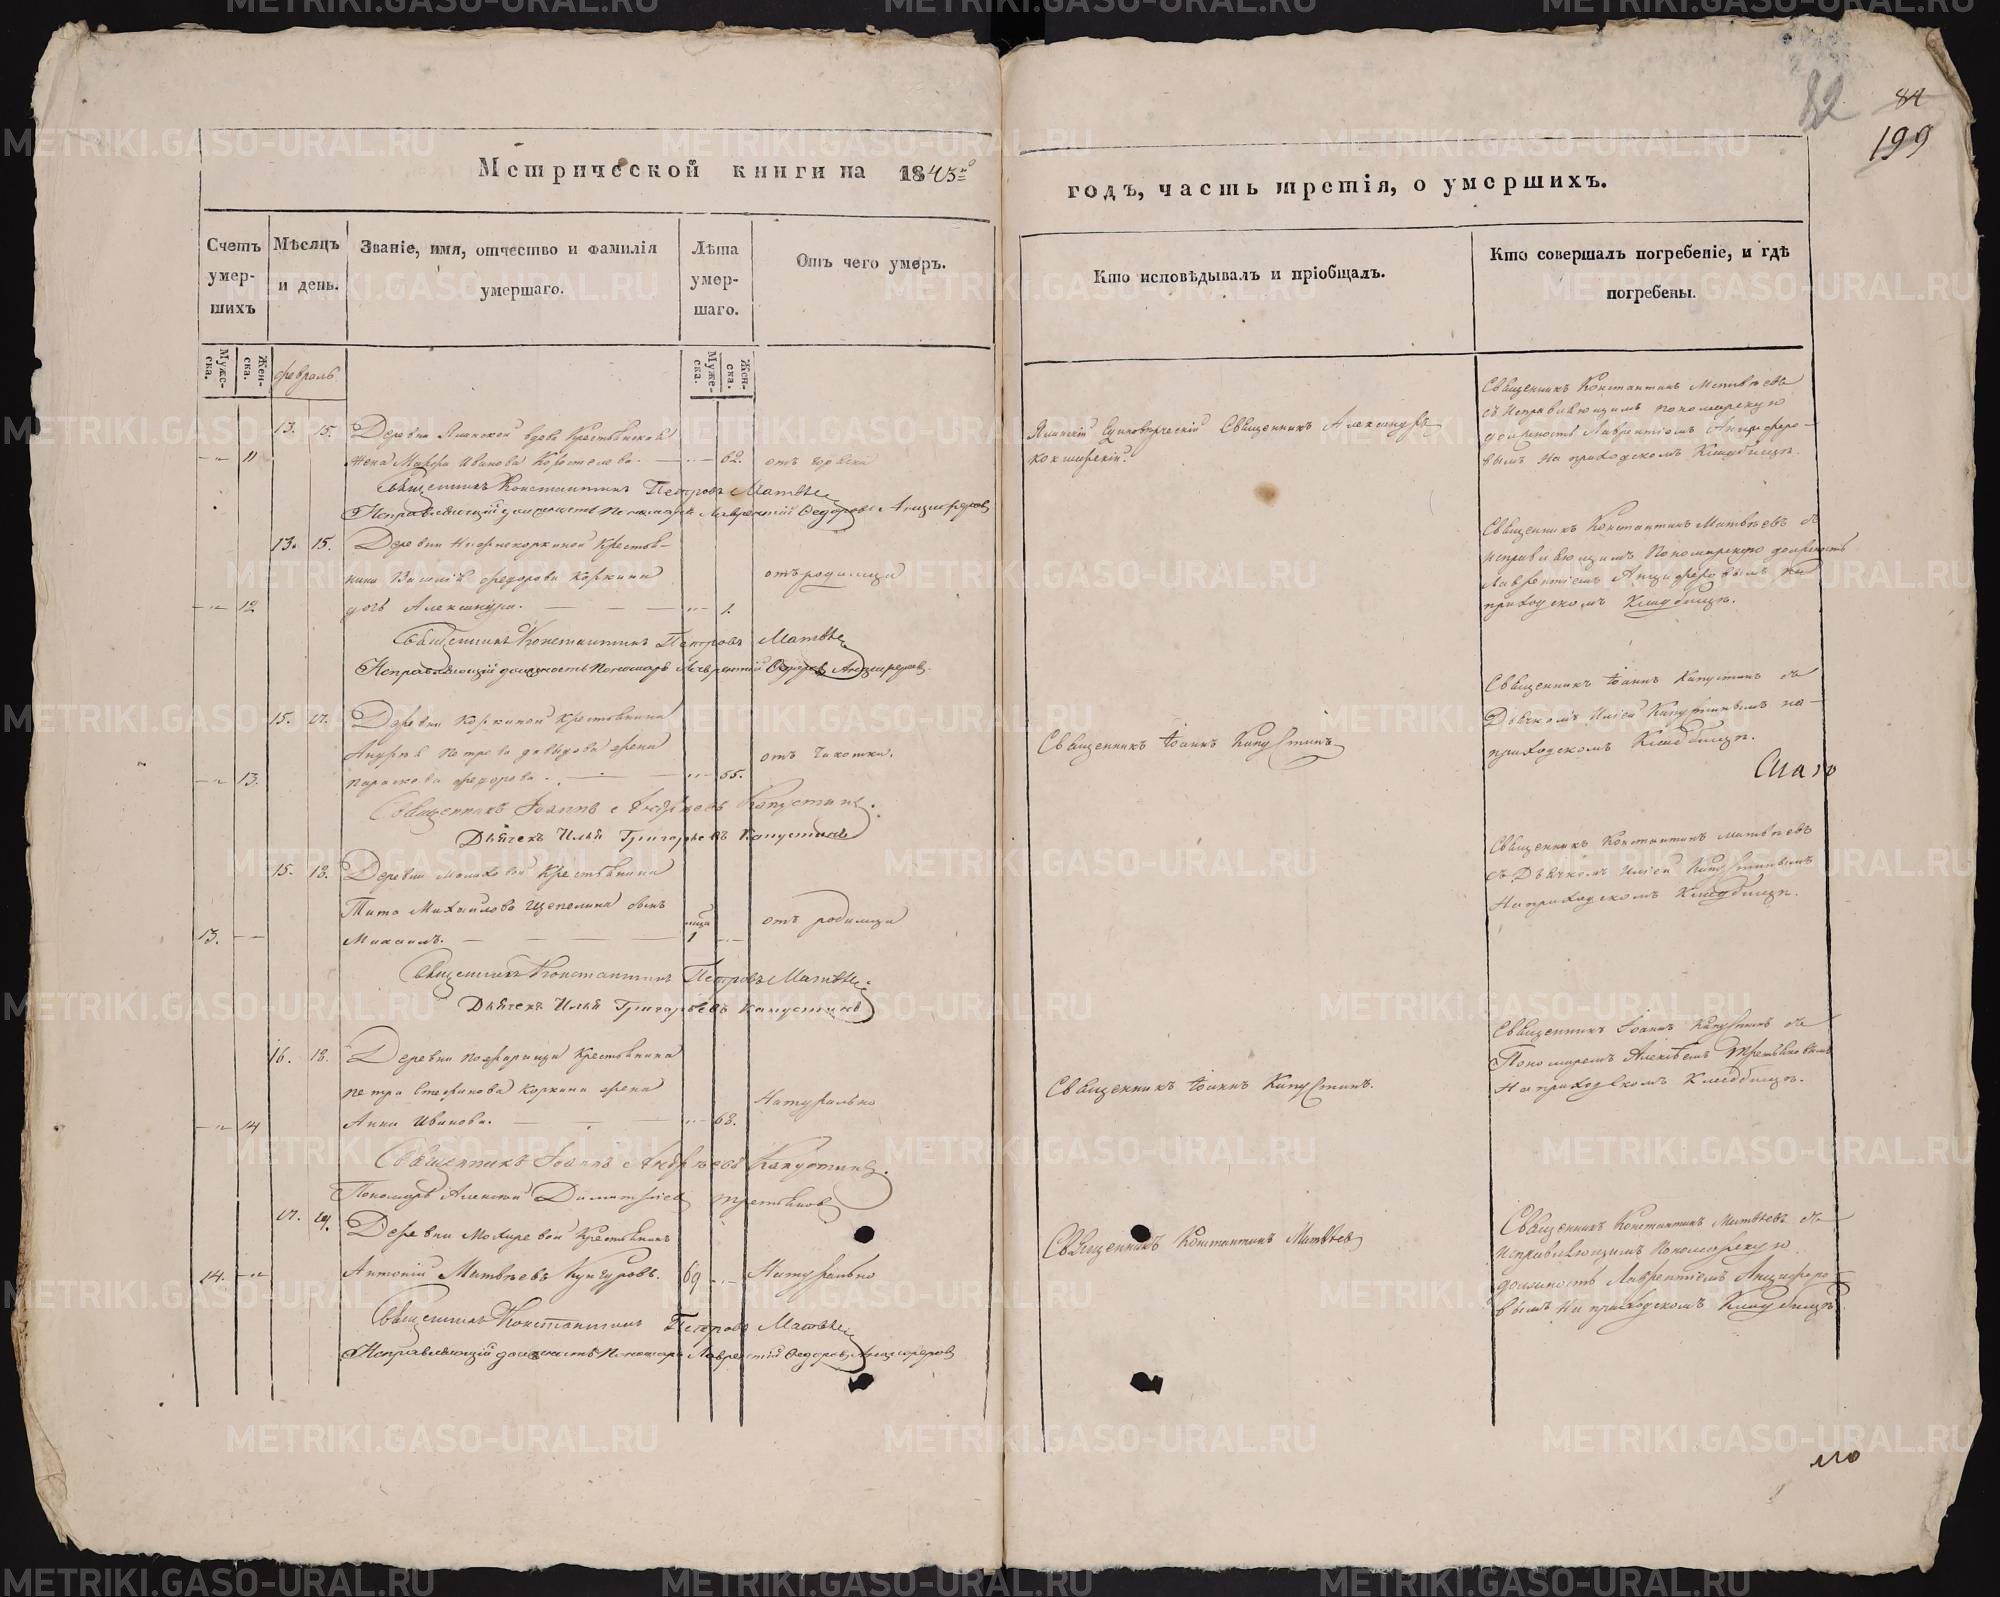 82
84
199
Метрической книги на 1843й
годъ, часть третія, о умершихъ.
Счетъ умер-шихъ
Мѣсяцъ и день.
Званіе, имя, отчество и фамилія умершаго.
Лѣта умер-шаго.
Отъ чего умеръ.
Кто исповѣдывалъ и пріобщалъ.
Кто совершалъ погребеніе, и гдѣ погребены.
Муже-ска.
Жен-ска.
февраль
Муже-ска.
Жен-ска.
13. 15. Деревни Ялинской вдова Крестьянская
11 жена Марфа Иванова 62. отъ горячки
Священникъ Константинъ Петровъ Матвѣевъ
Исправляющій должность Пономаря Лаврентій Ѳедоровъ Анциферовъ
Единовѣрческій Священникъ Александръ
Священникъ Константинъ Матвѣевъ
съ Исправляющимъ пономарскую
должность Лаврентіемъ Анциферо-
вымъ на приходскомъ Кладбищѣ.
13. 15. Деревни Нифонокоркиной Крестья-
нина Василія Федорова Коркина отъ родимца
12 дочь Александра. 1.
Священникъ Константинъ Петровъ Матвѣевъ
Исправляющій должность Пономаря Лаврентій Ѳедоровъ Анциферовъ.
Священникъ Константинъ Матвѣевъ съ
исправляющимъ Пономарскую должность
Лаврентіемъ Анциферовымъ на
приходскомъ Кладбищѣ.
15. 17. Деревни Коркиной Крестьянина
Андрея Петрова Давыдова жена отъ чахотки.
13. Параскова Федорова. 55.
Священникъ Іоаннъ Андреевъ Капустинъ.
Дьячекъ Илья Григорьевъ Капустинъ
Священникъ Іоаннъ Капустинъ
Священникъ Іоаннъ Капустинъ съ
Дьячкомъ Ильею Капустинымъ на
приходскомъ Кладбищѣ.
15. 18. Деревни Малаховой Крестьянина
Тита Михайлова Щепелина сынъ отъ родимца
13. Михаилъ. 1
Священникъ Константинъ Петровъ Матвѣевъ
Дьячекъ Илья Григорьевъ Капустинъ
Священникъ Константинъ Матвѣевъ
съ Дьячкомъ Ильею Капустинымъ
На приходскомъ Кладбищѣ.
16. 18. Деревни Пожарища Крестьянина
Петра Стефанова Коркина жена Натурально
14 Анна Иванова. 68.
Священникъ Іоаннъ Андреевъ Капустинъ.
Пономарь Алексѣй Димитріевъ Третьяковъ
Священникъ Іоаннъ Капустинъ.
Священникъ Іоаннъ Капустинъ съ
Пономаремъ Алексѣемъ Третьяковымъ
На приходскомъ Кладбищѣ.
17. 19. Деревни Мохиревой Крестьянинъ
14. Антоній Матвѣевъ Кунгуровъ. 69 Натурально
Священникъ Константинъ Петровъ Матвѣевъ
Исправляющій должность Пономаря Лаврентій Ѳедоровъ Анциферовъ
Священникъ Константинъ Матвѣевъ
Священникъ Константинъ Матвѣевъ съ
исправляющимъ Пономарскую
должность Лаврентіемъ Анциферо-
вымъ На приходскомъ Кладбищѣ
METRIKI.GASO-URAL.RU